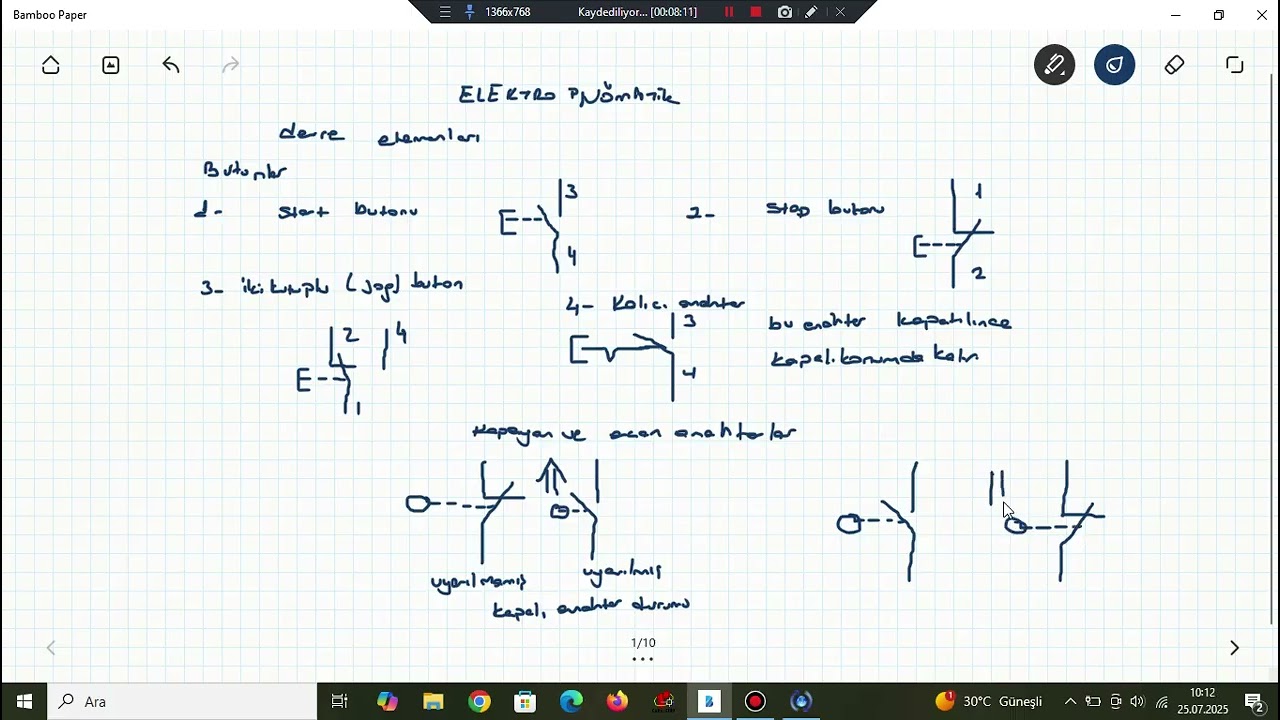 Bamboo Paper
1366x768 Kaydediliyor... [00:08:11]
ELEKTRO PNÖMATİK
devre elemanları
Butonlar
1- Start butonu
3
4
2- Stop butonu
1
2
3- iki kutuplu (Jog) buton
2 4
1
4- Kalıcı anahtar
3
4
bu anahtar kapatılınca
kapalı konumda kalır
Kapayan ve açan anahtarlar
uyarılmamış
uyarılmış
kapalı anahtar durumu
1/10
Ara
30°C Güneşli
10:12
25.07.2025
2